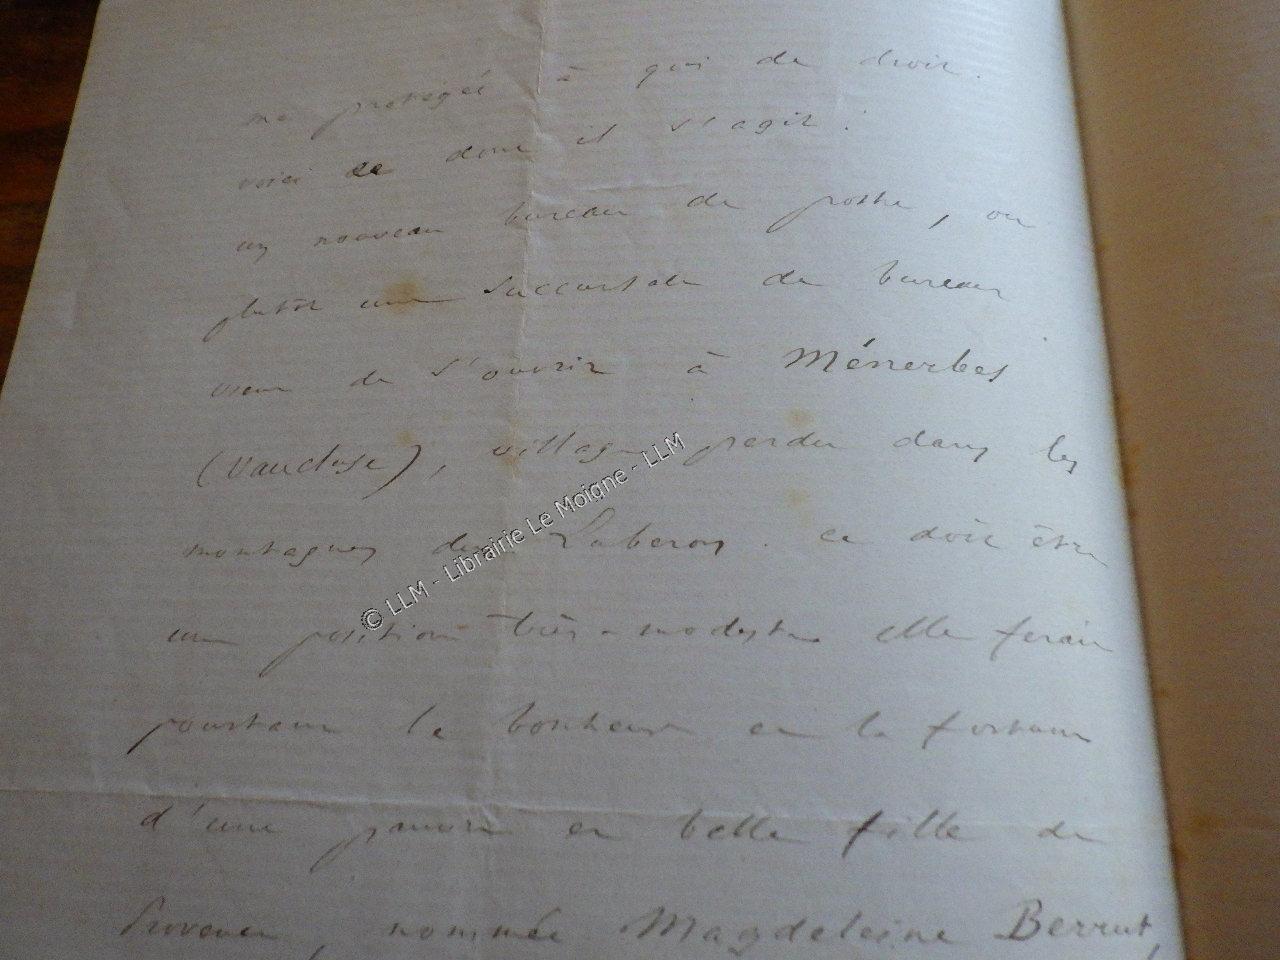 ma protégée à qui de droit.
voici ce dont il s'agit :
un nouveau bureau de poste, ou
plutôt une succursale de bureau
vient de s'ouvrir à Ménerbes
(Vaucluse), village perdu dans les
montagnes du Luberon. ce doit être
une position très-modeste elle ferait
pourtant le bonheur et la fortune
d'une pauvre et belle fille de
Provence, nommée Magdeleine Berrut,
© LLM - Librairie Le Moigne - LLM